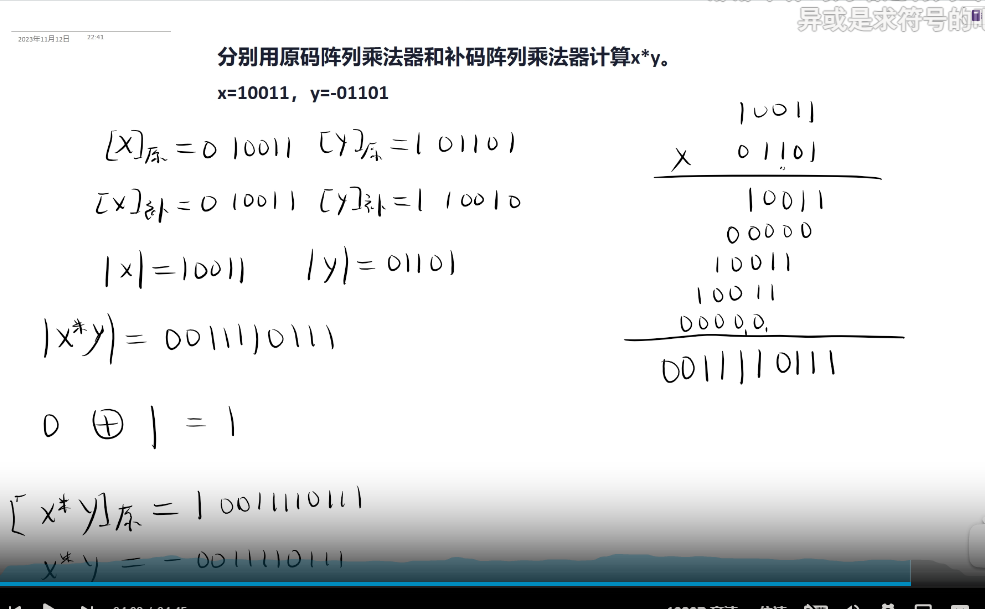 异或是求符号的
2023年11月12日 22:41
分别用原码阵列乘法器和补码阵列乘法器计算x*y。
x=10011，y=-01101
[X]原=0 10011 [Y]原=1 01101
[X]补=0 10011 [Y]补=1 10010
|x|=10011 |y|=01101
|x*y|=0011110111
0 ⊕ 1 = 1
[x*y]原=1 0011110111
x*y=-0011110111
10011
X 01101
10011
00000
10011
10011
00000
0011110111